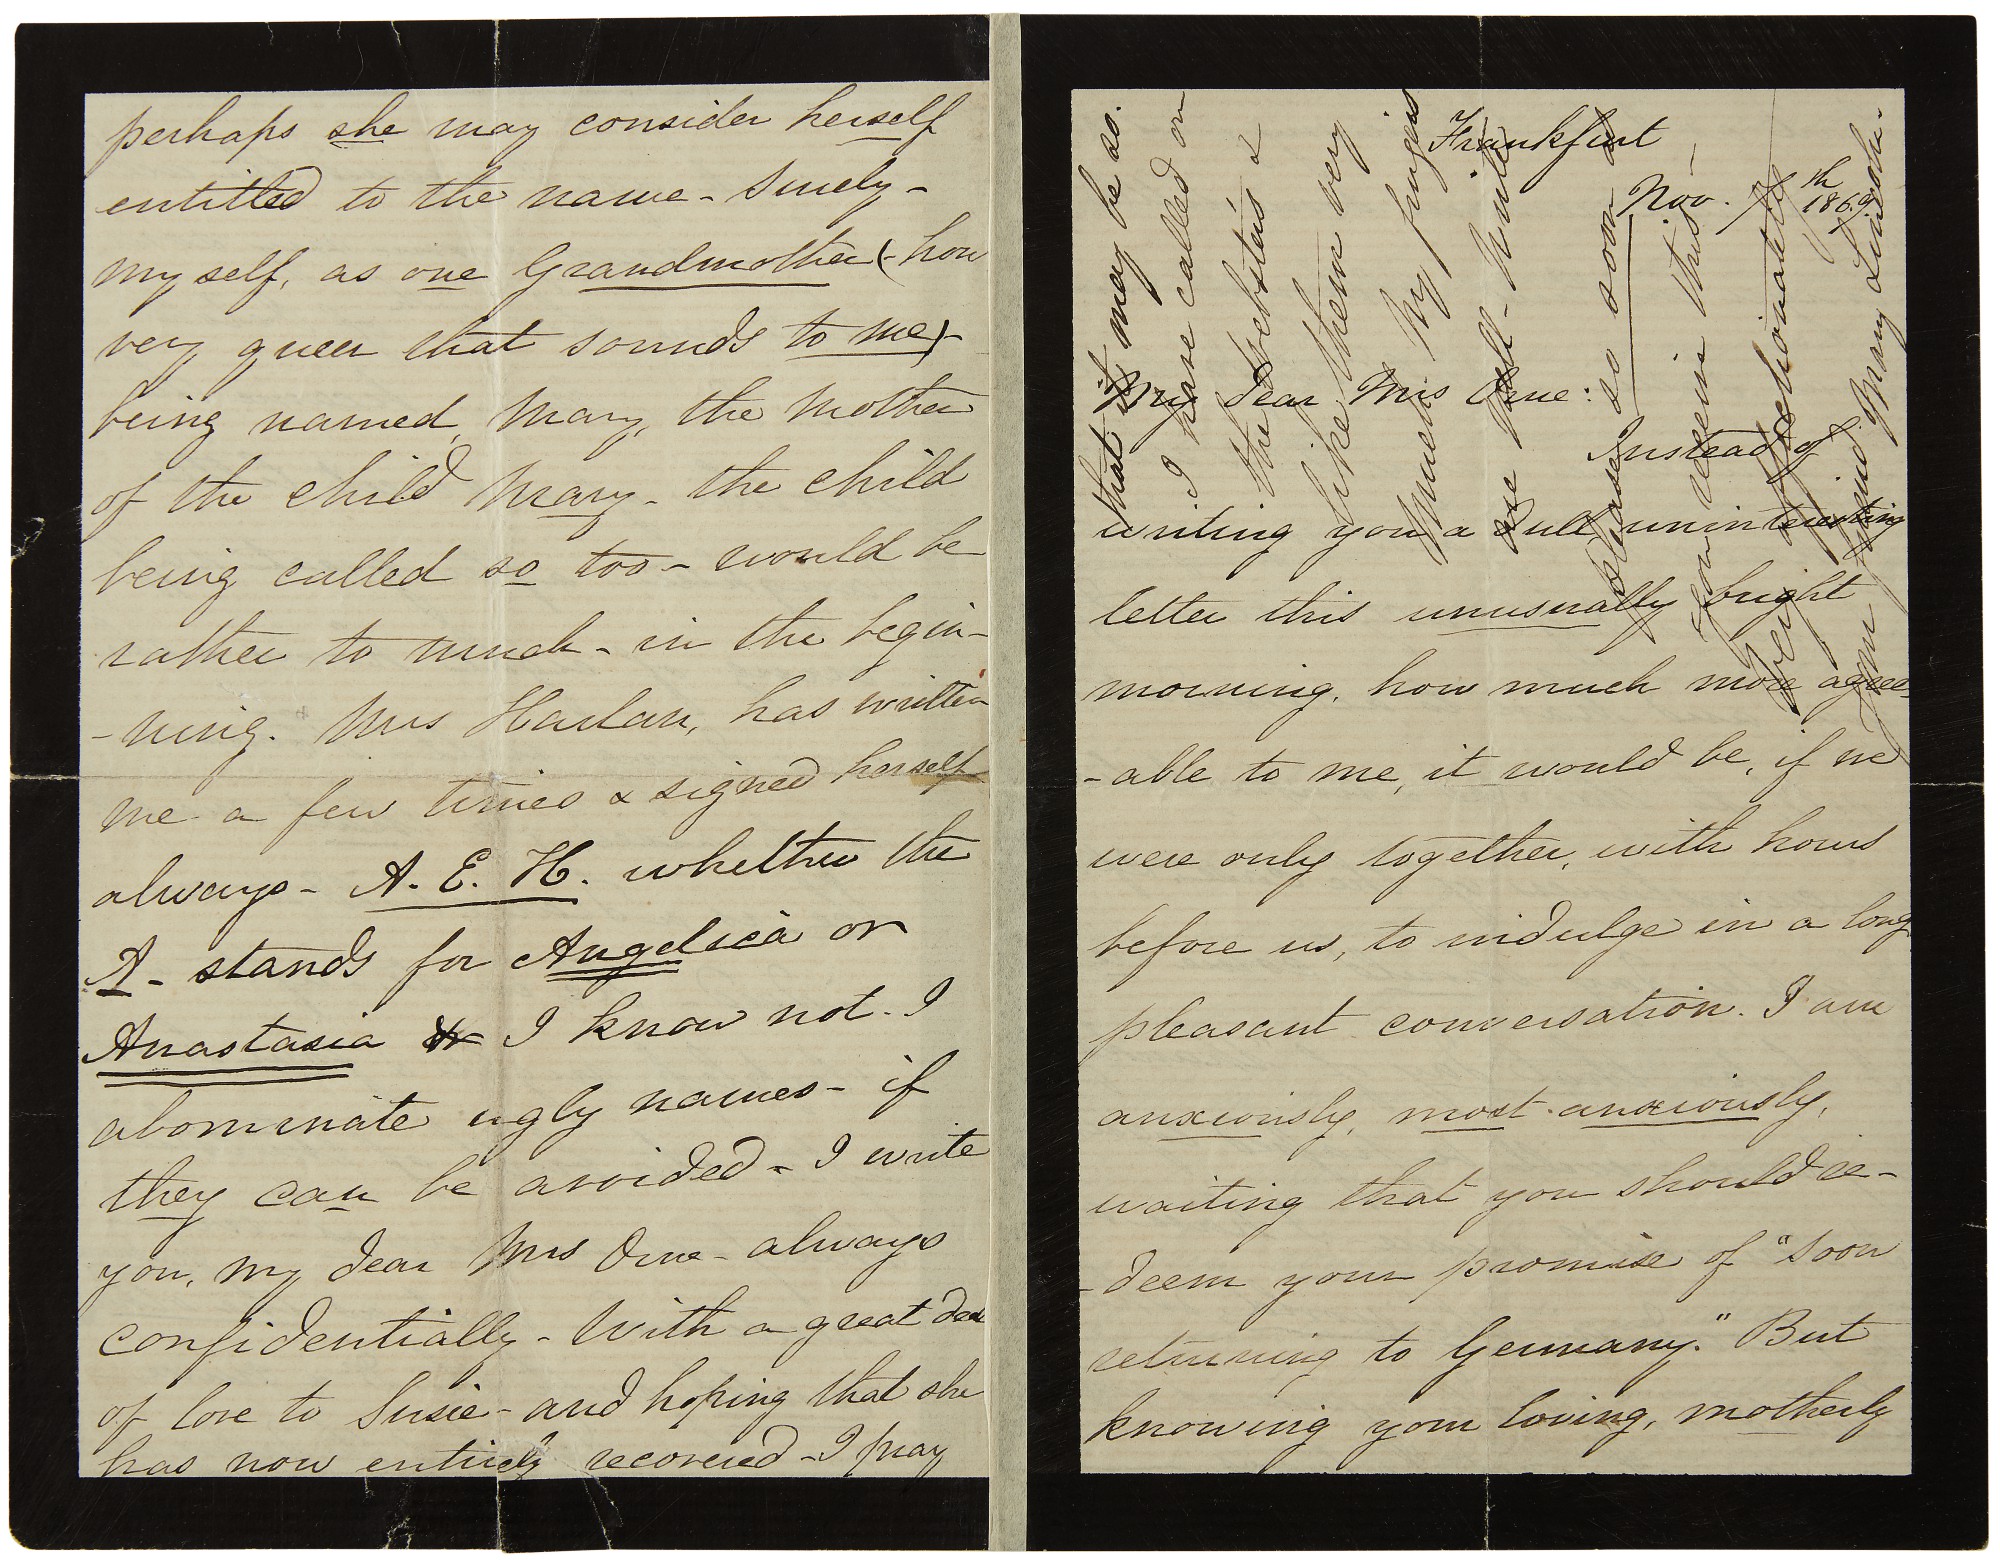 perhaps she may consider herself
entitled to the name - Surely -
myself, as one Grandmother (- how
very queer that sounds to me) -
being named, Mary, the Mother
of the child Mary - the child
being called so too - would be
rather to much - in the begin-
-ning. Mrs Harlan, has written
me a few times & signed herself
always - A. E. H. whether the
A - stands for Angelica or
Anastasia I know not. I
abominate ugly names - if
they can be avoided - I write
you, my dear Mrs Orne - always
confidentially - With a great deal
of love to Susie - and hoping that she
has now entirely recovered - I pray
Frankfurt
Nov. 7th
1869
My dear Mrs Orne:
Instead of
writing you a dull uninteresting
letter this unusually bright
morning, how much more agree-
-able to me, it would be, if we
were only together, with hours
before us, to indulge in a long
pleasant conversation. I am
anxiously, most anxiously,
waiting that you should re-
-deem your promise of "soon
returning to Germany." But
knowing your loving, motherly
that it may be so.
I have called on
the Webster's &
like them very
much. My fingers
are well. Write
so soon as
you receive this -
Very affectionately
Your friend Mary Lincoln.